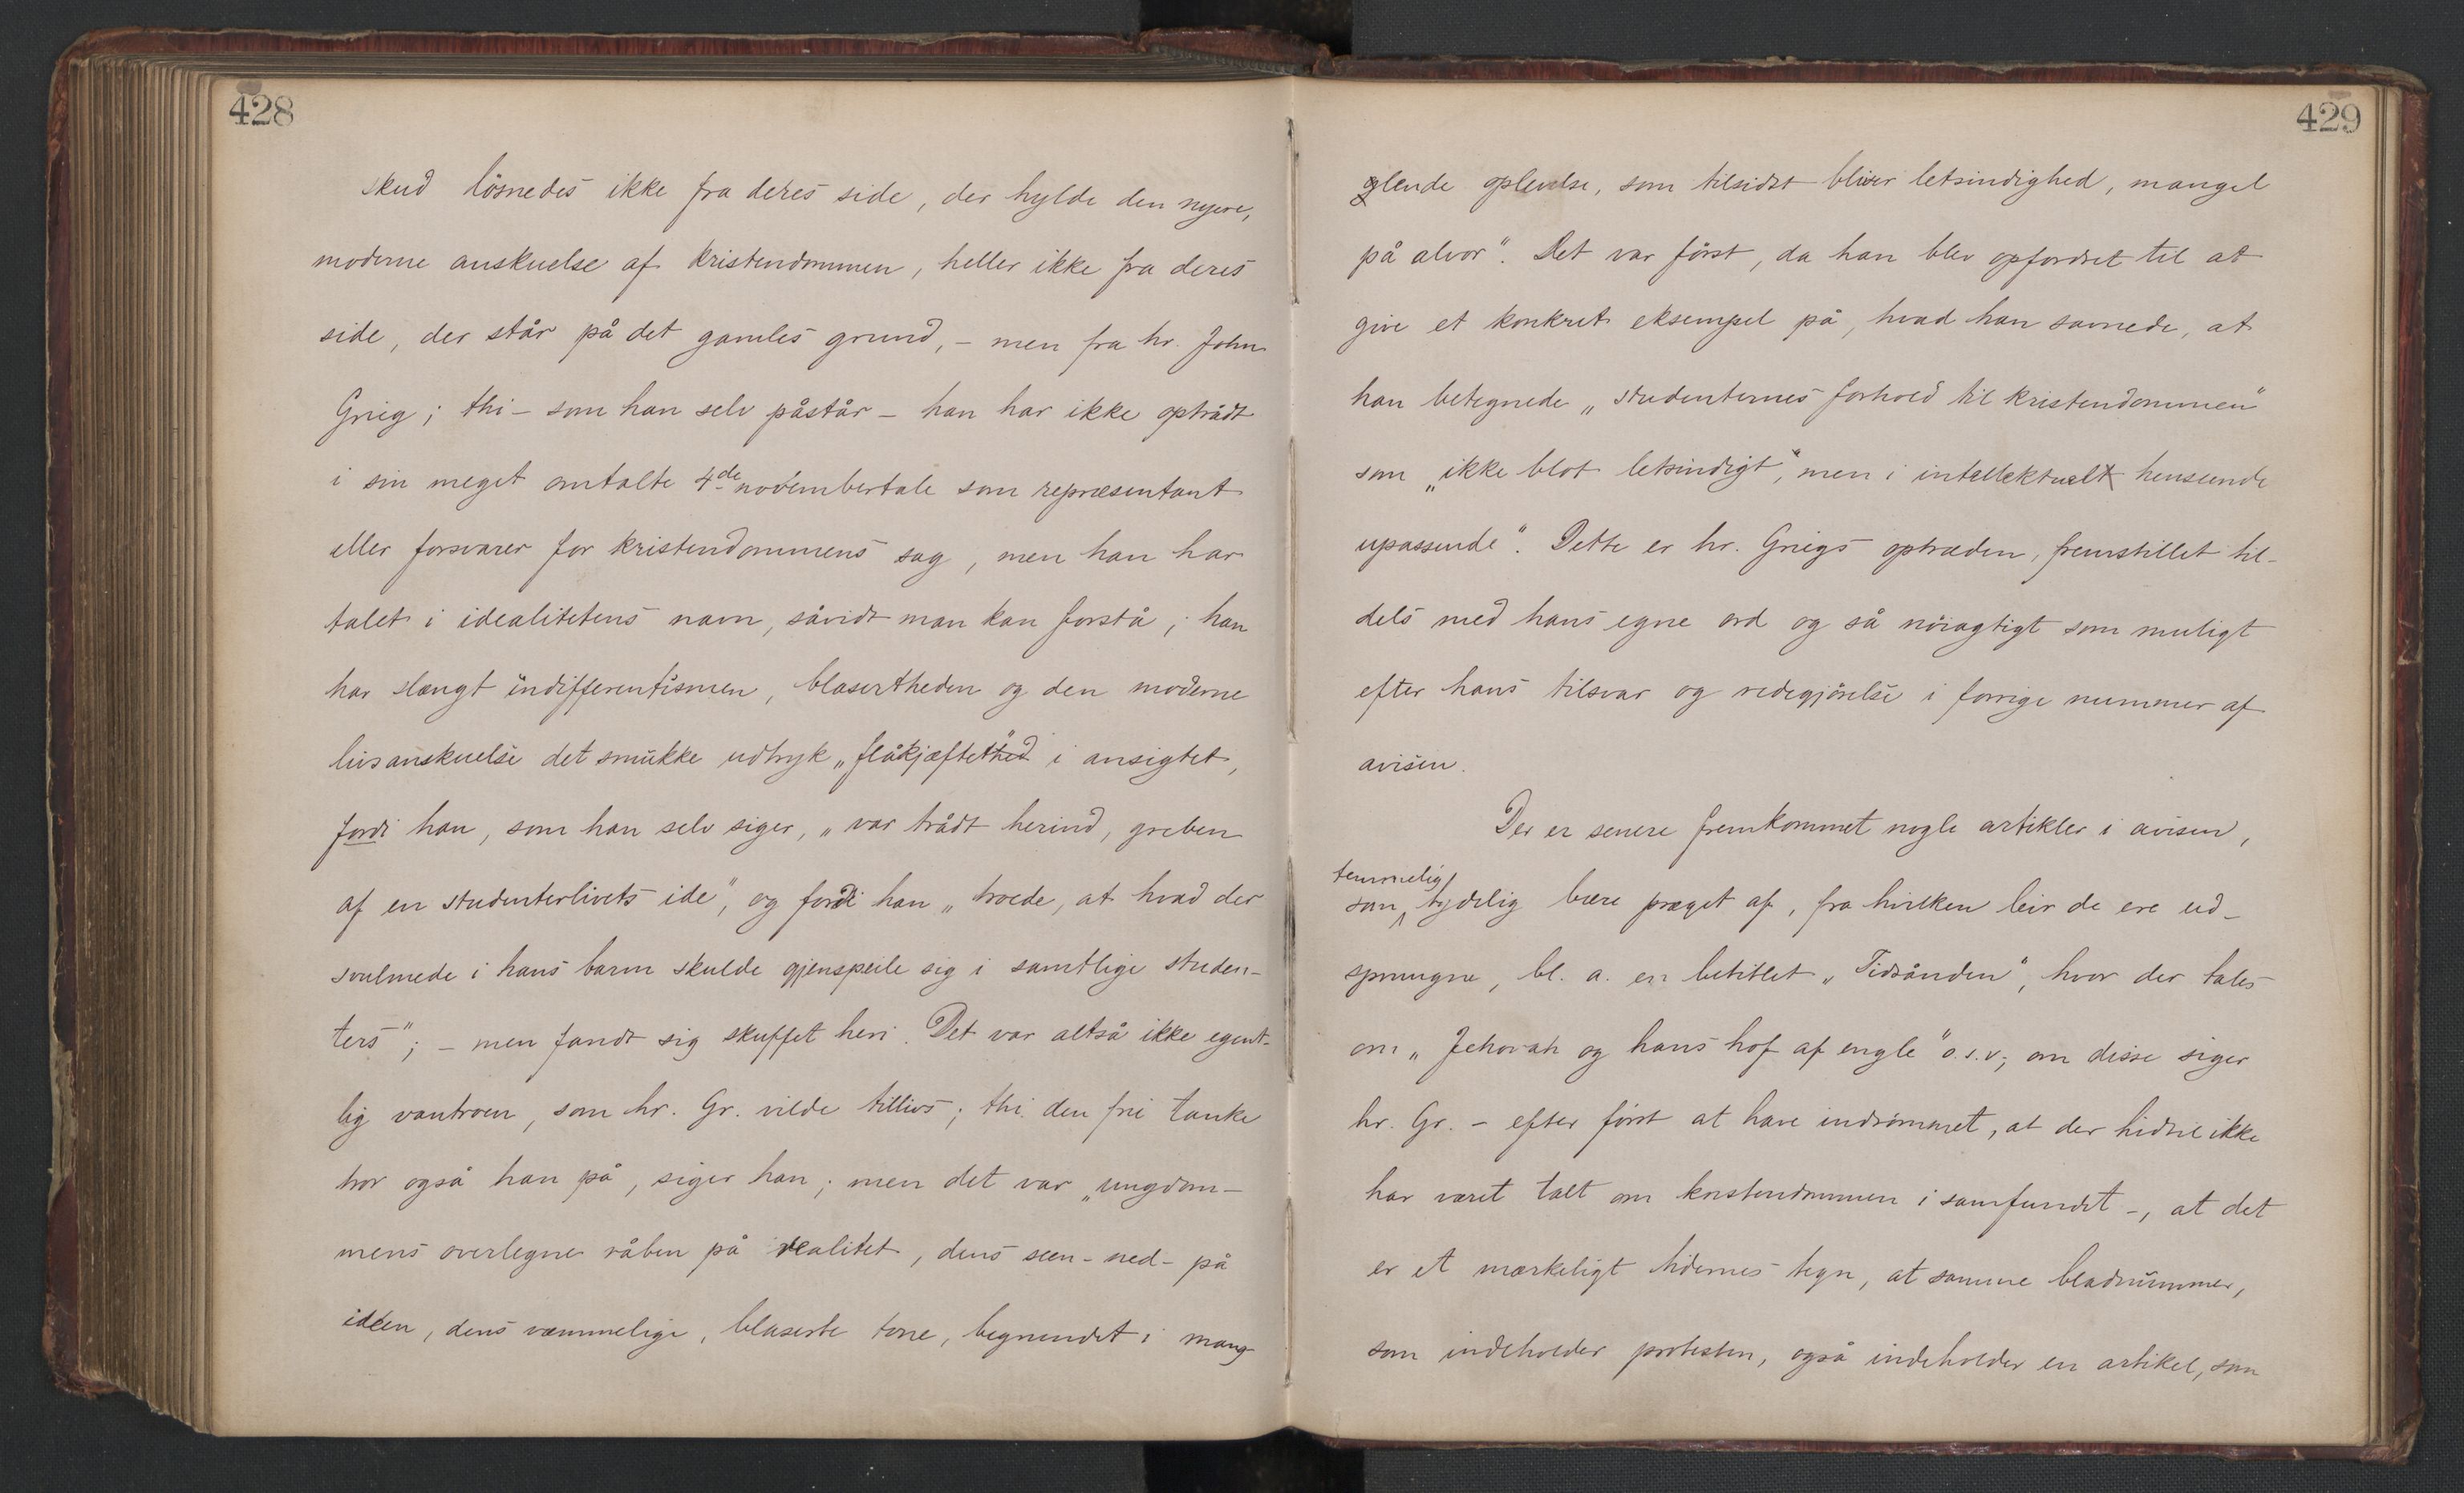 428
skud lösnedes ikke fra deres side, der hylde den nyere,
moderne anskuelse af kristendommen, heller ikke fra deres
side, der står på det gamles grund, – men fra hr. John
Grieg; thi – som han selv påstår – han har ikke optrådt
i sin meget omtalte 4de novembertale som repræsentant
eller forsvarer for kristendommens sag, men han har
talet i idealitetens navn, såvidt man kan forstå; han
har slængt indifferentismen, blasertheden og den moderne
livsanskuelse det smukke udtryk „flåkjæftethed" i ansigtet,
fordi han, som han selv siger, „var trådt herind, greben
af en studenterlivets ide", og fordi han „troede, at hvad der
svulmede i hans barm skulde gjenspeile sig i samtlige studen-
ters"; – men fandt sig skuffet heri. Det var altså ikke egent-
lig vantroen, som hr. Gr. vilde tillivs; thi den fri tanke
tror også han på, siger han; men det var „ungdom-
mens overlegne råben på realitet, dens seen-ned-på
idéen, dens væmmelige, blaserte tone, begrundet i mang-
429
glende oplevelse, som tilsidst bliver letsindighed, mangel
på alvor". Det var först, da han blev opfordret til at
give et konkret eksempel på, hvad han savnede, at
han betegnede „studenternes forhold til kristendommen"
som „ikke blot letsindigt", men i intellektuelt henseende
upassende". Dette er hr. Griegs optræden, fremstillet til-
dels med hans egne ord og så nöiagtigt som muligt
efter hans tilsvar og redegjörelse i forrige nummer af
avisen.
Der er senere fremkommet nogle artikler i avisen,
som temmelig tydelig bære præget af, fra hvilken leir de ere ud-
sprungne, bl. a. en betitlet „Tidsånden", hvor der tales
om „Jehovah og hans hof af engle" o.s.v.; om disse siger
hr. Gr. – efter först at have indrömmet, at der hidtil ikke
har været talt om kristendommen i samfundet –, at det
er et mærkeligt tidernes tegn, at samme bladnummer,
som indeholder protesten, også indeholder en artikel, som